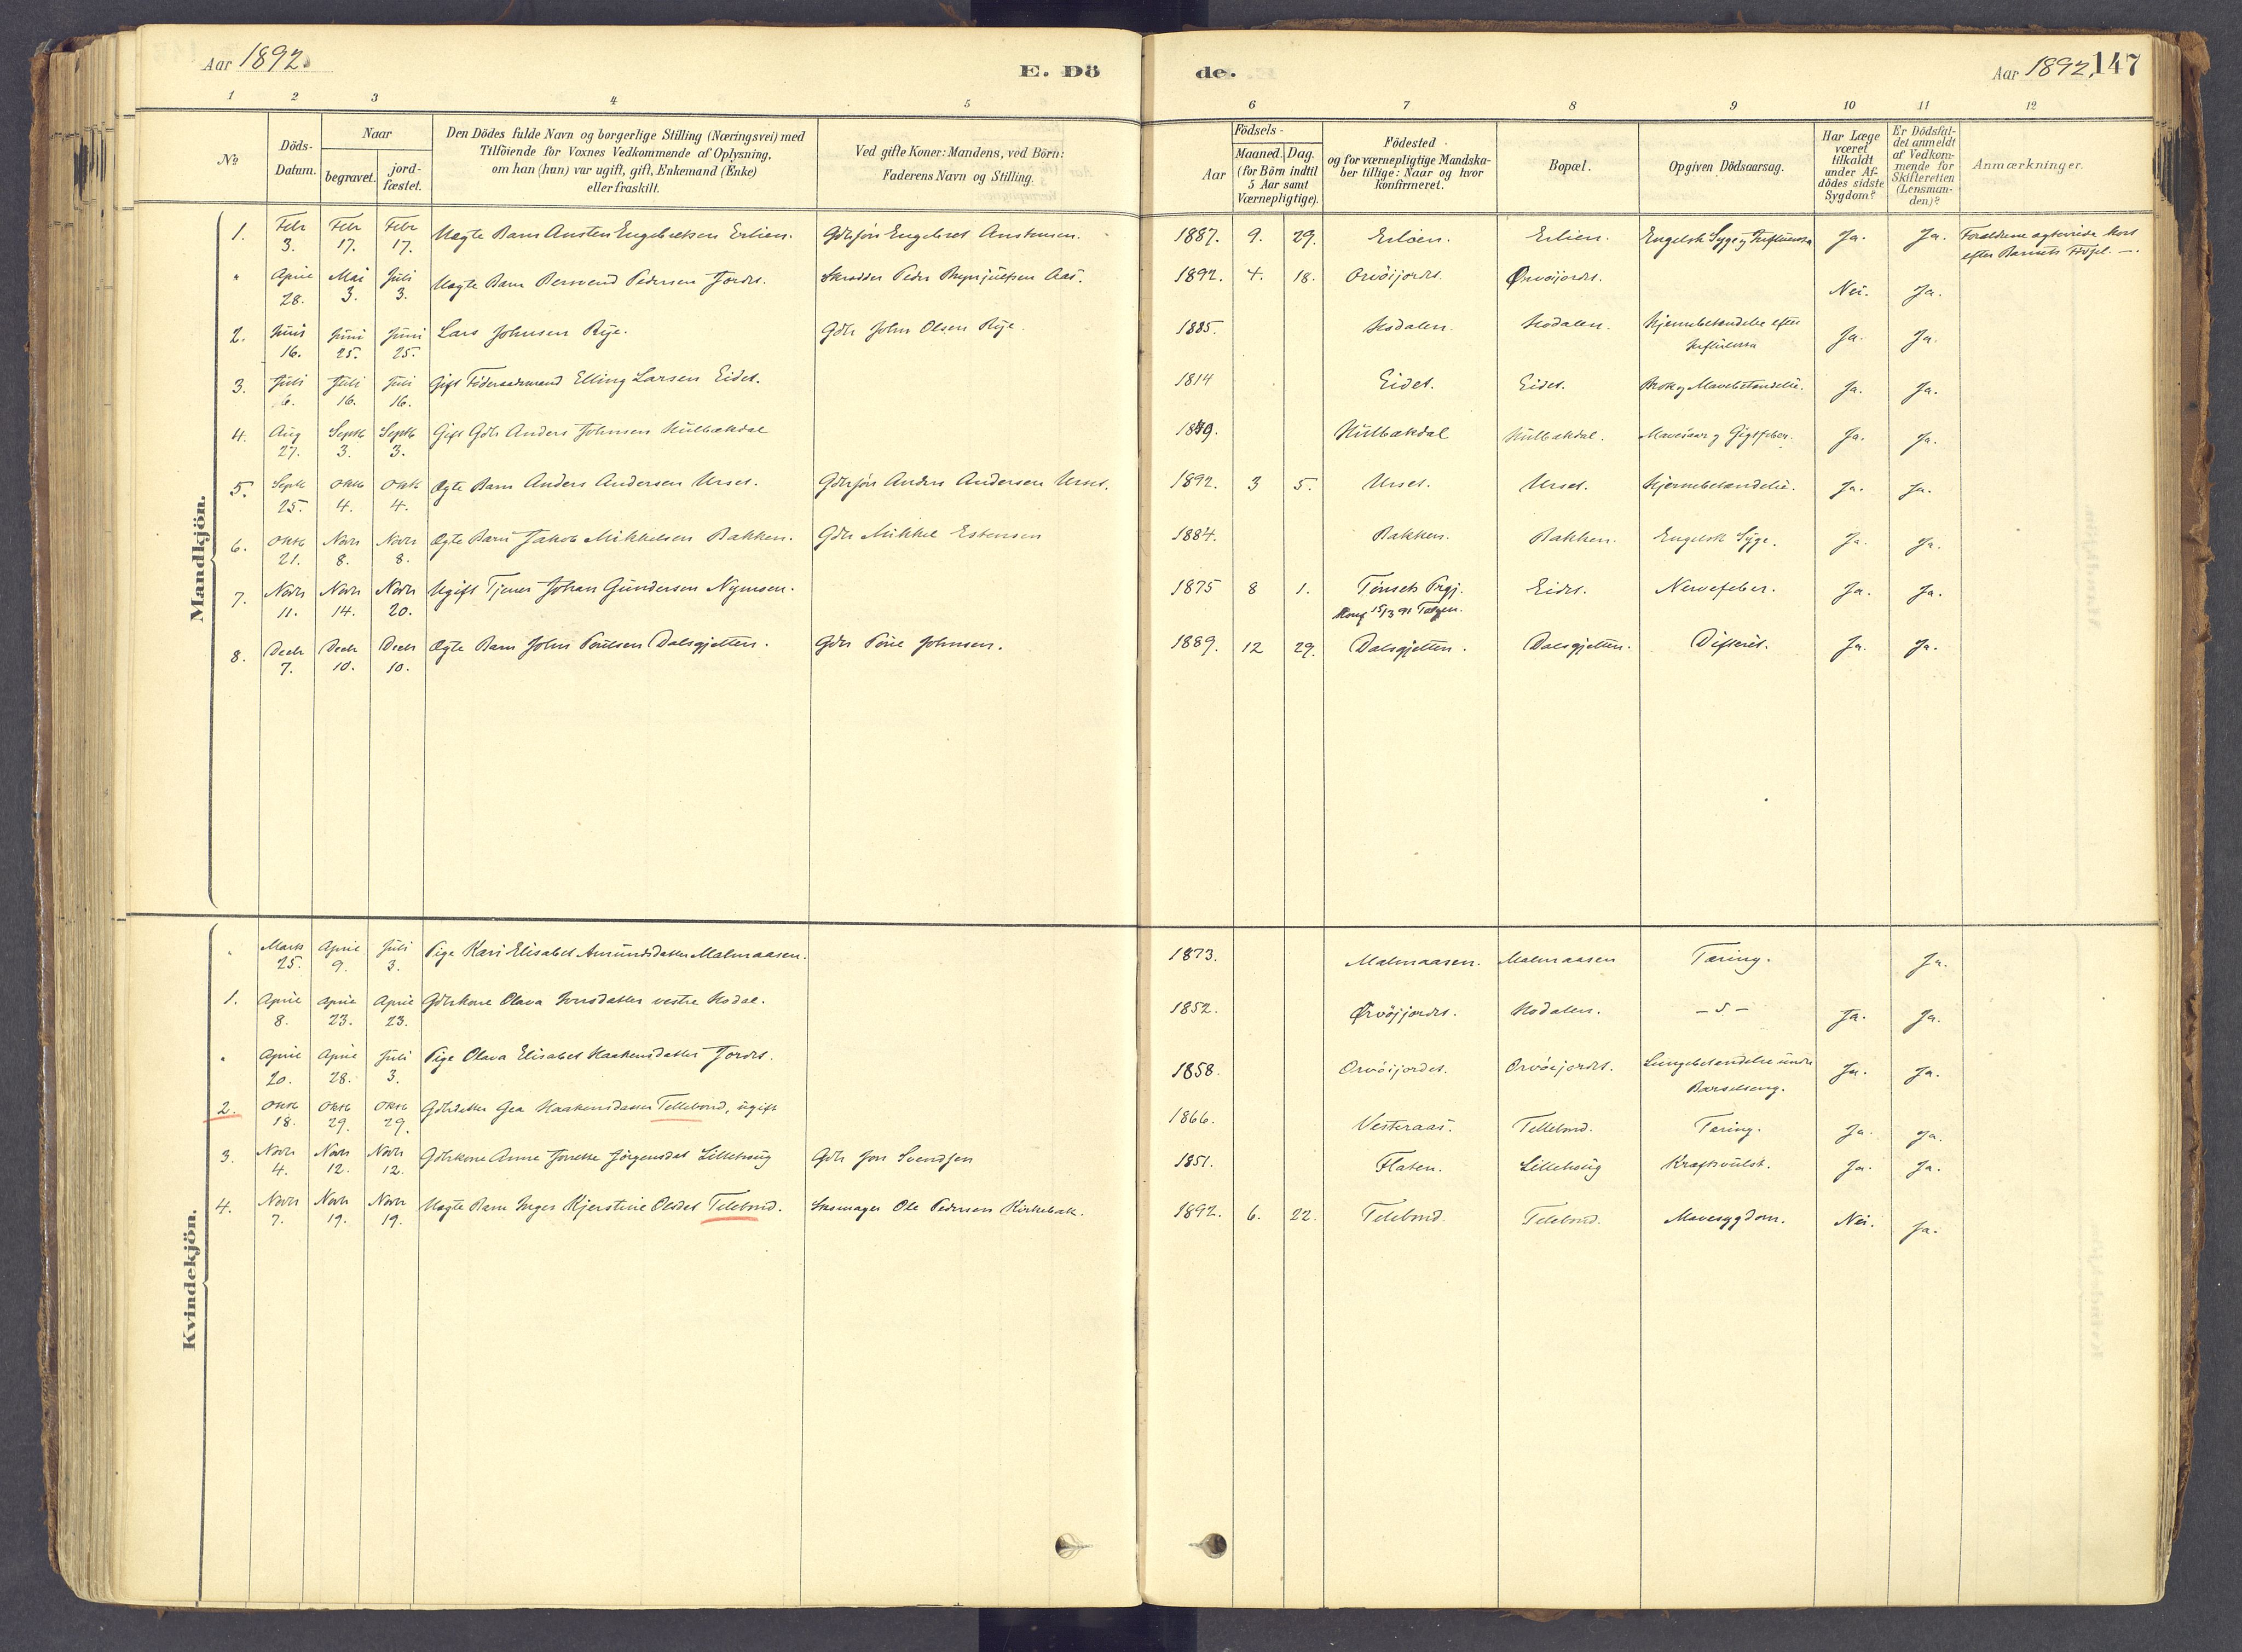 Aar 1892.
E. Dö
de.
Aar 1892. 147
1 2 3 4 5 6 7 8 9 10 11 12
No
Döds-Datum.
Naar
begravet.
jord-fæstet.
Den Dödes fulde Navn og borgerlige Stilling (Næringsvei) med
Tilföiende for Voxnes Vedkommende af Oplysning,
om han (hun) var ugift, gift, Enkemand (Enke)
eller fraskilt.
Ved gifte Koner: Mandens, ved Börn:
Faderens Navn og Stilling.
Födsels-
Aar
Maaned. Dag.
(for Börn indtil
5 Aar samt
Værnepligtige).
Födested
og for værnepligtige Mandska-
ber tillige: Naar og hvor
konfirmeret.
Bopæl.
Opgiven Dödsaarsag.
Har Læge
været
tilkaldt
under Af-
dödes sidste
Sygdom?
Er Dödsfal-
det anmeldt
af Vedkom-
mende for
Skifteretten
(Lensman-
den)?
Anmærkninger.
Mandkjön.
1. Febr 3. Febr 17. Febr 17. Uægte Barn Austen Engebretsen Erlien. Gdbrsön Engebret Austensen. 1887. 9. 29. Erlien. Erlien. Engelsk Syge og Influensa Ja. Ja. Forældrene ægteviede kort
efter Barnets Födsel. —.
" April 28. Mai 3. Juli 3. Uægte Barn Bernend Pedersen Jordet. Skrædder Peder Aas. 1892. 4. 18. Orvöijordet. Ørvöijordet. Nei. Ja.
2. Juni 16. Juni 25. Juni 25. Lars Johnsen Rye. Gdbr John Olsen Rye. 1885. Hodalen. Hodalen. Hjernebetændelse efter
Influensa Ja. Ja.
3. Juli 6. Juli 16. Juli 16. Gift Föderaadsmand Elling Larsen Eidet. 1814 Eidet. Eidet. Brok og Mavebetændelse. Ja. Ja.
4. Aug 27. Septb 3. Septb 3. Gift Gdbr Anders Johnsen Hulbækdal 1849. Hulbækdal Hulbækdal. Mavesaar og Gigtfeber. Ja. Ja.
5. Septb 25. Oktb 4. Oktb 4. Ægte Barn Anders Andersen Urset. Gdbrsön Anders Andersen Urset. 1892. 3 5. Urset. Urset. Hjernebetændelse. Ja. Ja.
6. Oktb 21. Novbr 8. Novbr 8. Ægte Barn Jakob Mikkelsen Bakken. Gdbr Mikkel Estensen 1884. Bakken. Bakken. Engelsk Syge. Ja. Ja.
7. Novbr 11. Novbr 14. Novbr 20. Ugift Tjener Johan Gundersen Nymoen. 1875 8 1. Tönsets Prgj.
Konf 15/3 91 Tolgen. Eidet. Nervefeber. Ja. Ja.
8. Decbr 7. Decbr 10. Decbr 10. Ægte Barn John Poulsen Dalsgjetten. Gdbr Poul Johnsen. 1889. 12 29. Dalsgjetten. Dalsgjetten. Difterit. Ja. Ja.
Kvindekjön.
" Marts 25. April 9. Juli 3. Pige Kari Elisabet Amundsdatter Malmaasen. 1873. Malmaasen. Malmaasen Tæring. Ja.
1. April 8. April 23. April 23. Gdbrkone Olava Iversdatter vestre Hodal. 1852. Ørvöijordet. Hodalen. – S – Ja. Ja.
" April 20. April 28. Juli 3. Pige Olava Elisabet Haakensdatter Jordet. 1858. Orvöijordet. Orvöijordet. Lungebetændelse under
Barselseng. Ja. Ja.
2. Oktb 18. Oktb 29. Oktb 29. Gdbrdatter Gea Haakensdatter Tellebond, ugift 1866. Vesteraas. Tellebond. Tæring. Ja. Ja.
3. Novbr 4. Novbr 12. Novbr 12. Gdbrkone Anne Jonette Jörgensdat Lillehaug Gdbr Jon Svendsen 1851. Flaten. Lillehaug Kræftsvulst. Ja. Ja.
4. Novbr 7. Novbr 19. Novbr 19. Uægte Barn Inger Kjerstine Olsdat Telebond. Skomager Ole Pedersen Kirkebak. 1892. 6. 22. Telebond. Telebond. Mavesygdom. Nei. Ja.